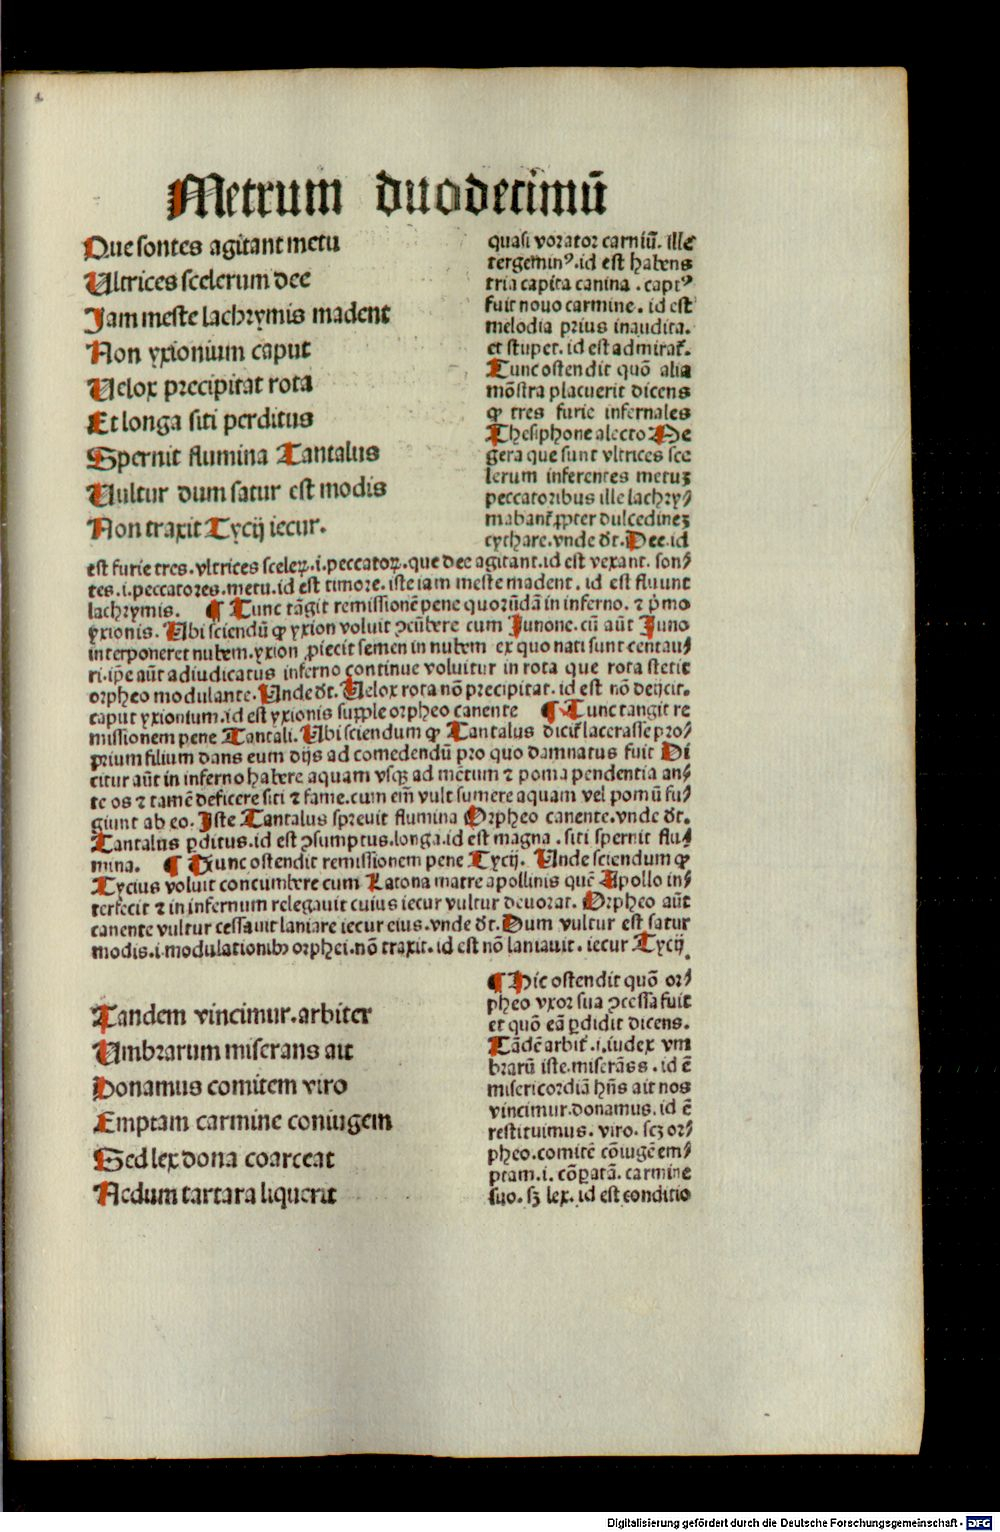 Metrum duodecimū
Que sontes agitant metu
Ultrices scelerum dee
Jam meste lachrymis madent
Non yxionium caput
Uelox precipitat rota
Et longa siti perditus
Spernit flumina Tantalus
Uultur dum satur est modis
Non traxit Tycij iecur.
quasi vorator carniū. ille
tergeminꝰ. id est habens
tria capita canina . captꝰ
fuit nouo carmine. id est
melodia prius inaudita.
et stupet. id est admirat᷑.
Tunc ostendit quō alia
mōstra placuerit dicens
ꝙ tres furie infernales
Thesiphone alecto Me
gera que sunt vltrices sce
lerum inferentes metuꝫ
peccatoribus ille lachry⸗
mabant᷑ ꝓpter dulcedineꝫ
cythare. vnde dr̄. Dee. id
est furie tres. vltrices sceleꝝ. i. peccatoꝝ. que dee agitant. id est vexant. son⸗
tes. i. peccatores. metu. id est timore. iste iam meste madent. id est fluunt
lachrymis. ¶ Tunc tāgit remissionē pene quorūdā in inferno. ⁊ p̄mo
yxionis. Ubi sciendū ꝙ yxion voluit ꝯcūbere cum Junone. cū aūt Juno
interponeret nubem. yxion ꝓiecit semen in nubem ex quo nati sunt centau⸗
ri. ip̄e aūt adiudicatus inferno continue voluitur in rota que rota stetit
orpheo modulante. Unde dr̄. Uelox rota nō precipitat. id est nō deijcit.
caput yxionium. id est yxionis sup̱ple orpheo canente ¶ Tunc tangit re
missionem pene Tantali. Ubi sciendum ꝙ Tantalus dicit᷑ lacerasse pro⸗
prium filium dans eum dijs ad comedendū pro quo damnatus fuit Di
citur aūt in inferno habere aquam vsqꝫ ad mētum ⁊ poma pendentia an⸗
te os ⁊ tamē deficere siti ⁊ fame. cum em̄ vult sumere aquam vel pomū fu⸗
giunt ab eo. Iste Tantalus spreuit flumina Orpheo canente. vnde dr̄.
Tantalus ꝑditus. id est ꝯsumptus. longa. id est magna . siti spernit flu⸗
mina. ¶ Hunc ostendit remissionem pene Tycij. Unde sciendum ꝙ
Tycius voluit concumbere cum Latona matre apollinis quē Apollo in⸗
terfecit ⁊ in infernum relegauit cuius iecur vultur deuorat. Orpheo aūt
canente vultur cessauit laniare iecur eius. vnde dr̄. Dum vultur est satur
modis. i. modulationibꝰ orphei. nō traxit. id est nō laniauit. iecur Tycij.
Tandem vincimur. arbiter
Umbrarum miserans ait
Donamus comitem viro
Emptam carmine coniugem
Sed lex dona coarceat
Nedum tartara liquerit
¶ Hic ostendit quō or⸗
pheo vxor sua ꝯcessa fuit
et quō eā ꝑdidit dicens.
Tādē arbit᷑. i. iudex vm
brarū iste. miserās s. id ē
misericordiā hn̄s ait nos
vincimur. donamus. id ē
restituimus. viro. scꝫ or⸗
pheo. comitē cōiugē em⸗
ptam. i. cōꝑatā. carmine
suo. sꝫ lex. id est conditio
Digitalisierung gefördert durch die Deutsche Forschungsgemeinschaft - DFG